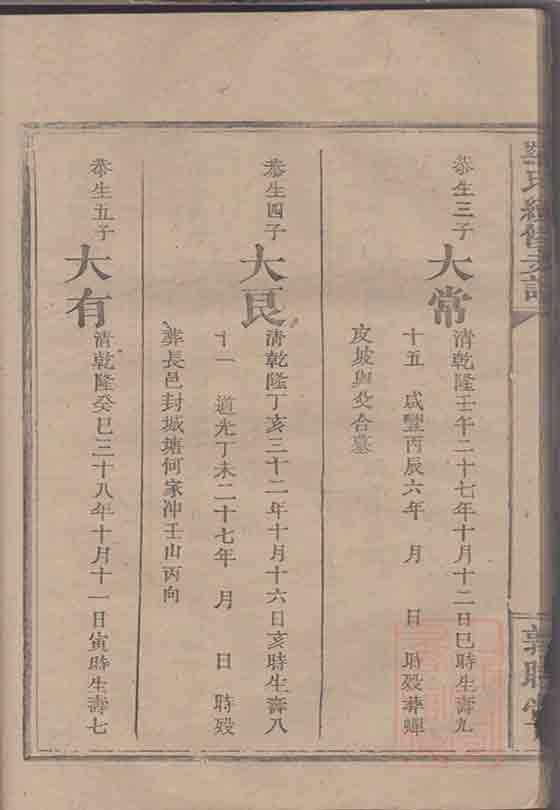 氏續修支譜
恭生三子
大常
清乾隆壬午二十七年十月十二日巳時生壽九
十五 咸豐丙辰六年 月 日 時歿葬蟬
皮坡與父合墓
恭生四子
大良
清乾隆丁亥三十二年十月十六日亥時生壽八
十一 道光丁未二十七年 月 日 時歿
葬長邑封城塘何家沖壬山丙向
恭生五子
大有
清乾隆癸巳三十八年十月十一日寅時生壽七